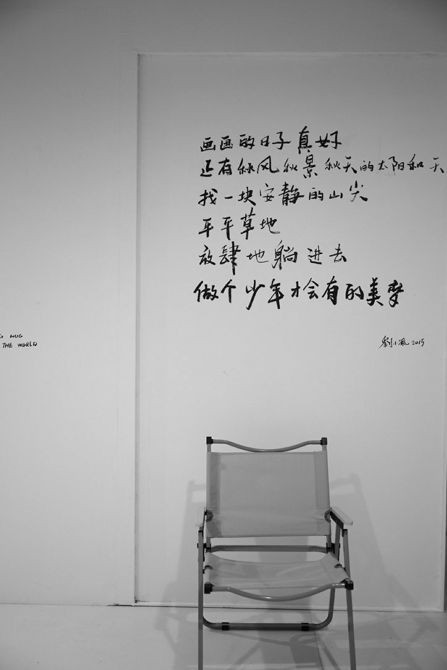 画画的日子真好
还有秋风秋景秋天的太阳和天
找一块安静的山尖
平平草地
放肆地躺进去
做个少年才会有的美梦
劉小溅 2015
HUG
THE WORLD